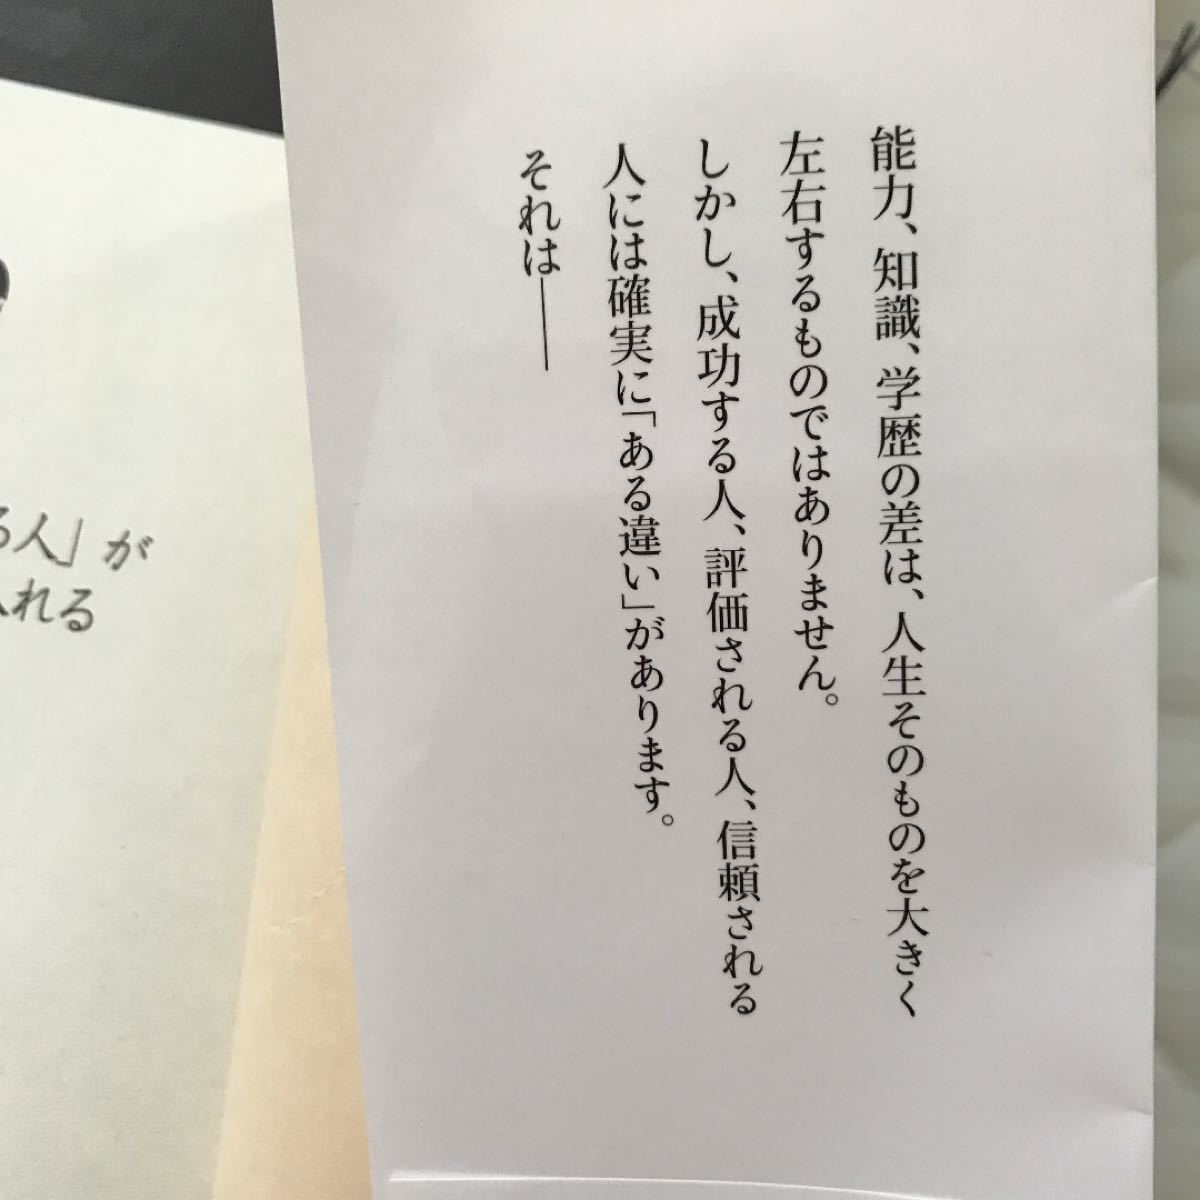 能力、知識、学歴の差は、人生そのものを大きく
左右するものではありません。
しかし、成功する人、評価される人、信頼される
人には確実に「ある違い」があります。
それは――
る人」が
れる